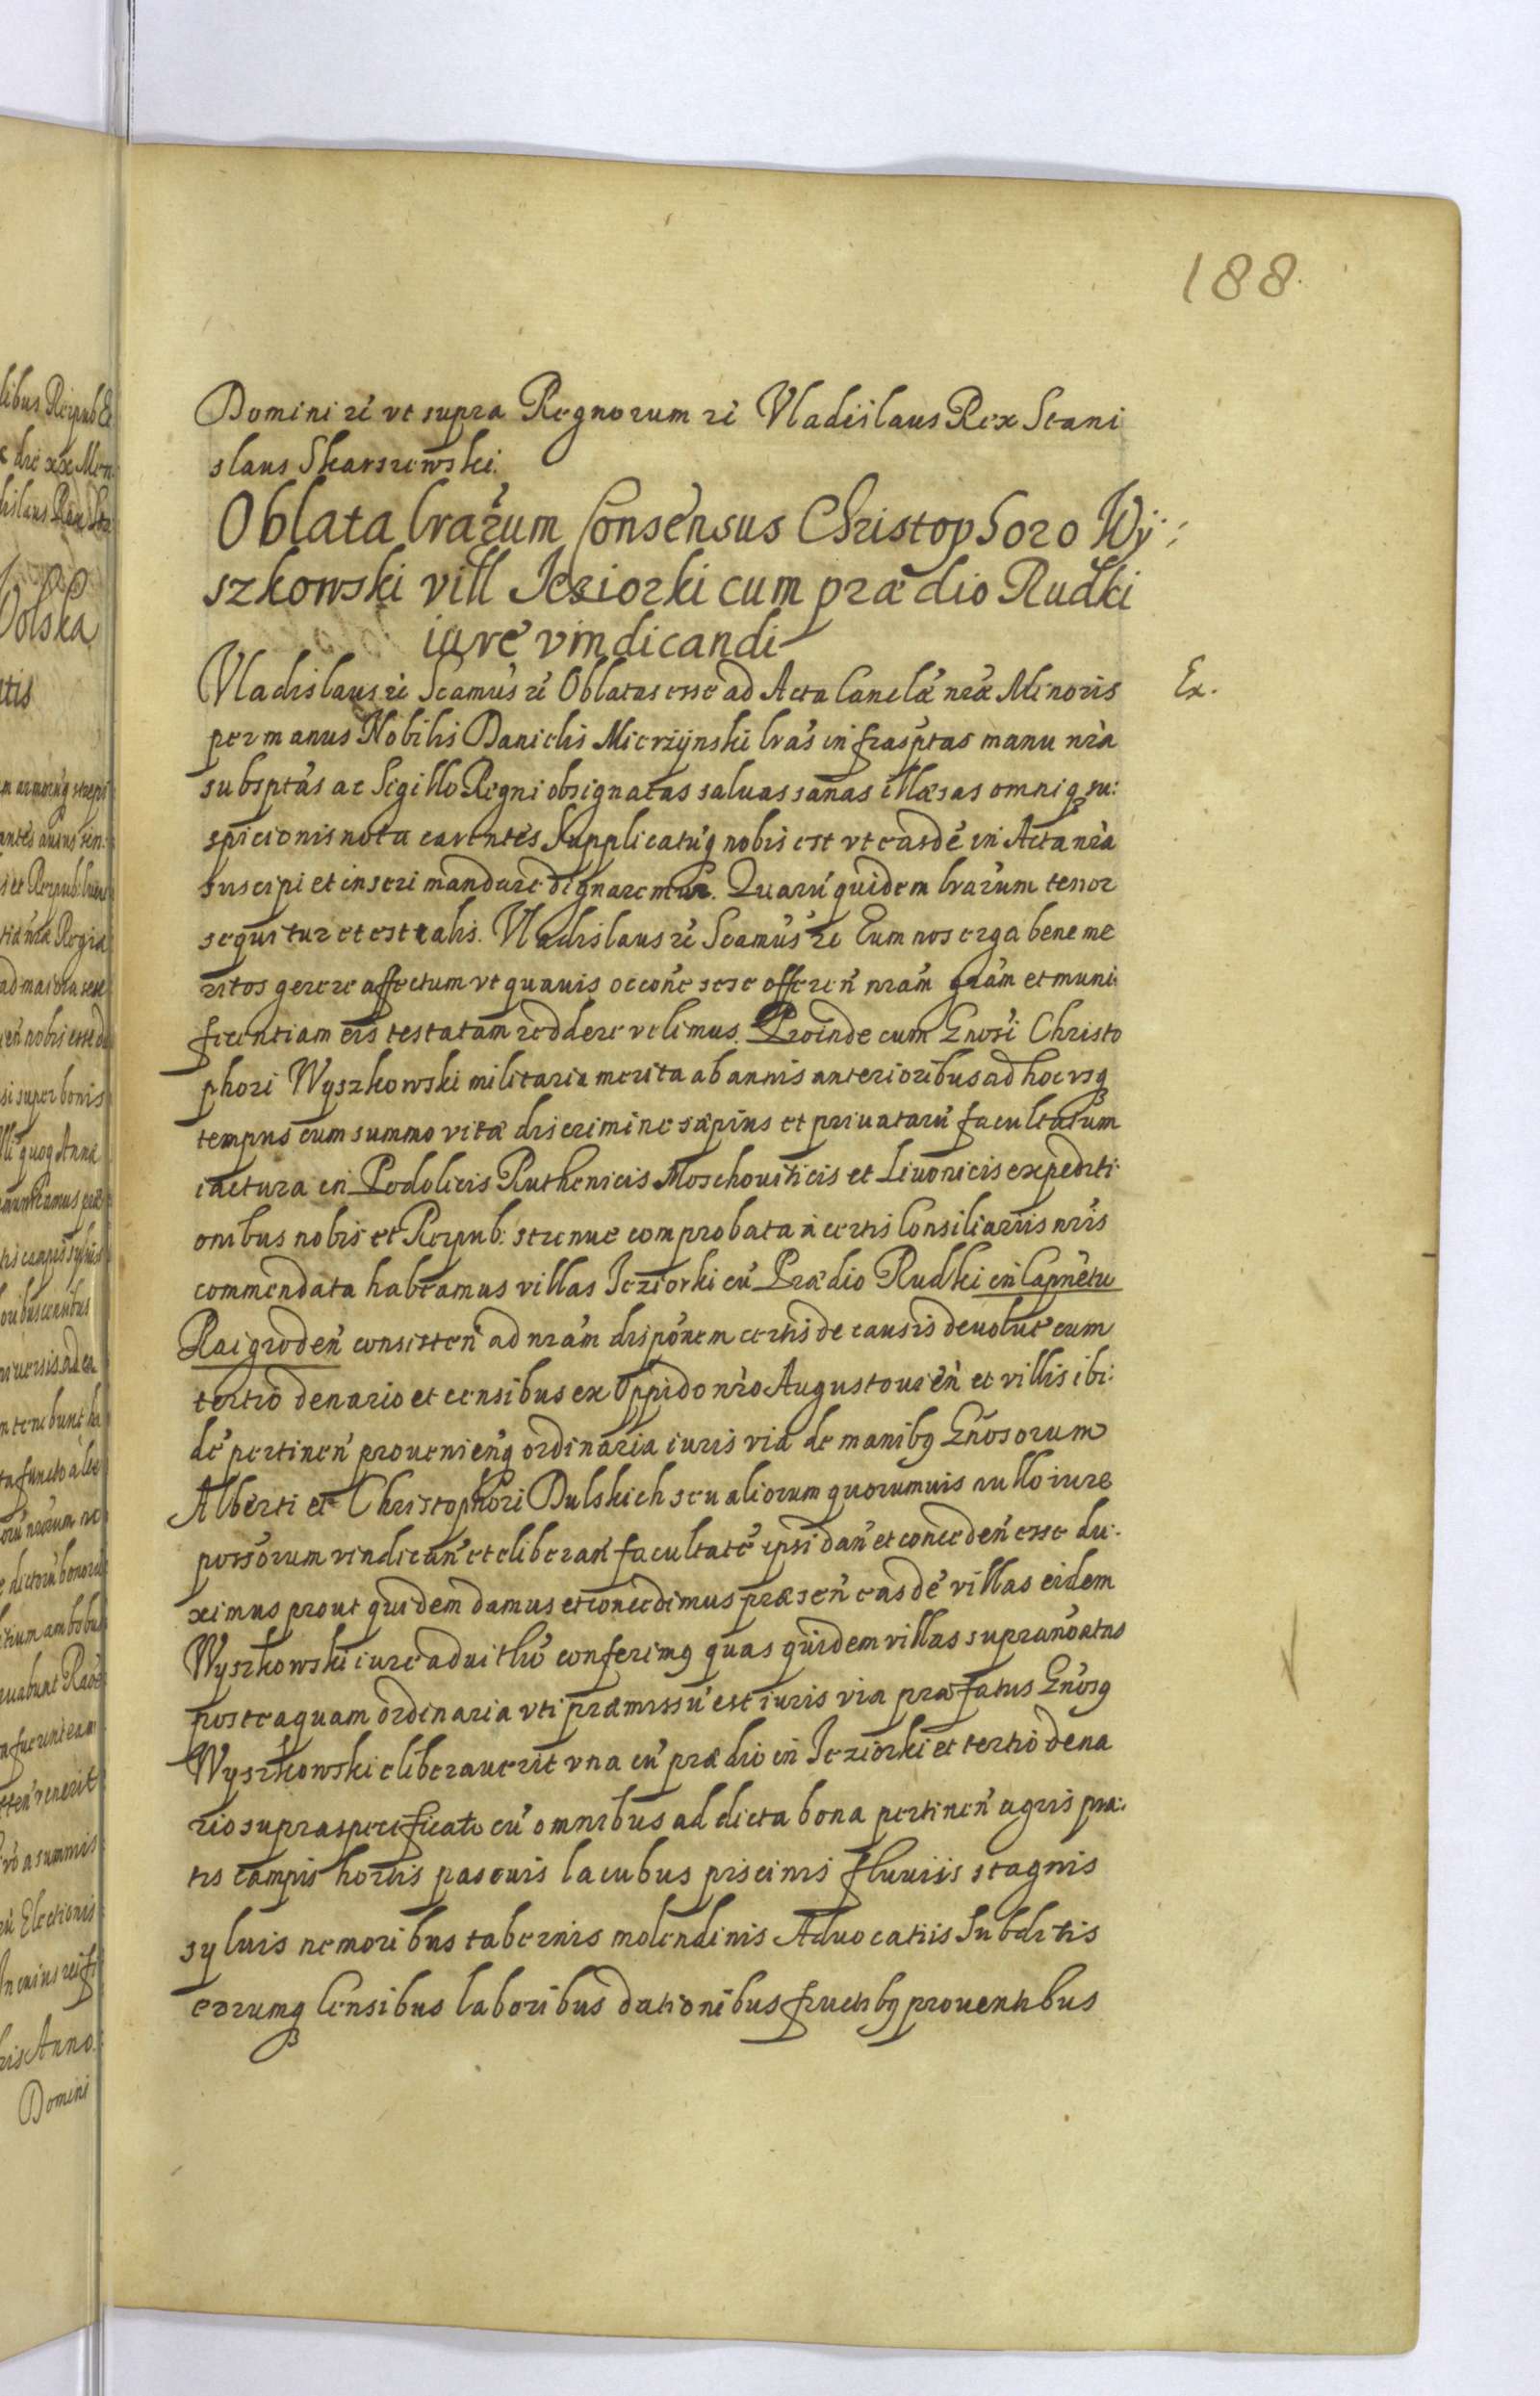 188.
Domini rć vt supra Regnorum rć Vladislaus Rex Stani
slaus Skarszewski.
Oblata lrarum Consensus Christophoro Wy:
szkowski vill Jeziorki cum prædio Rudki
iure vindicandi
Vladislaus rć Seamús rć Oblatas esse ad Acta Canclæ nræ Minoris
Ex.
per manus Nobilis Danielis Mierzÿnski lras infrasptas manu nra
subsptas ac Sigillo Regni obsignatas saluas sanas illæsas omniq su:
spicionis nota carentes Supplicatuq nobis est vt easdé in Acta nra
suscipi et inseri mandare dignaremur. Quarú quidem lrarum tenor
sequitur et est talis. Vladislaus rć Seamús rć Eum nos erga bene me
ritos gerere affectum vt quauis occone sese offeren nram gram et muni
ficentiam eis testatam reddere velimus. Proinde cum Gnosi Christo
phori Wyszkowski militaria merita ab annis anterioribus ad hoc vsq
tempus cum summo vitæ discrimine sæpius et priuatarú facultatum
iactura in Podolicis Ruthenicis Moschouiticis et Liuonicis expediti
onibus nobis et Reipub: strenue comprobata a certis Consiliariis nris
commendata habeamus villas Jeziorki cú Prædio Rudki in Capnetu
Raigroden consisten ad nram disponem certis de causis deuolut cum
tertio denario et censibus ex Oppido nro Augustouien et villis ibi:
dé pertinen prouenienq ordinaria iuris via de manibq Gnosorum
Alberti et Christophori Dulskich seu aliorum quorumuis nullo iure
possorum vindican et eliberan facultaté ipsi dan et conceden esse du:
ximus prout quidem damus et concedimus præsen easdé villas eidem
Wyszkowski iure aduitli conferimq quas quidem villas supranoatas
posteaquam ordinaria vti præmissú est iuris via præfatus Gnosq
Wyszkowski eliberauerit vna cú prædio in Jeziorki et tertio dena
rio supraspecificato cú omnibus ad dicta bona pertinen agris pra:
tis campis hortis pascuis lacubus piscinis fluuiis stagnis
syluis nemoribus tabernis molendinis Aduocatiis Subditis
eorumq Censibus laboribus dationibus fructibq prouentibus